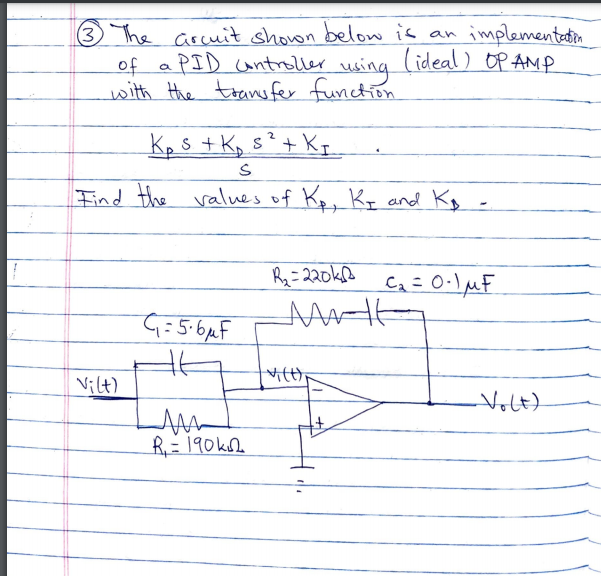 ③ The circuit shown below is an implementation
of a PID controller using (ideal) OP AMP
with the transfer function
Kₚ s + K_D s² + K_I
s
Find the values of Kₚ, K_I and K_D -
R₂ = 220kΩ C₂ = 0.1 μF
C₁ = 5.6μF
Vi(t) V₁(t) - Vo(t)
+
R₁ = 190kΩ